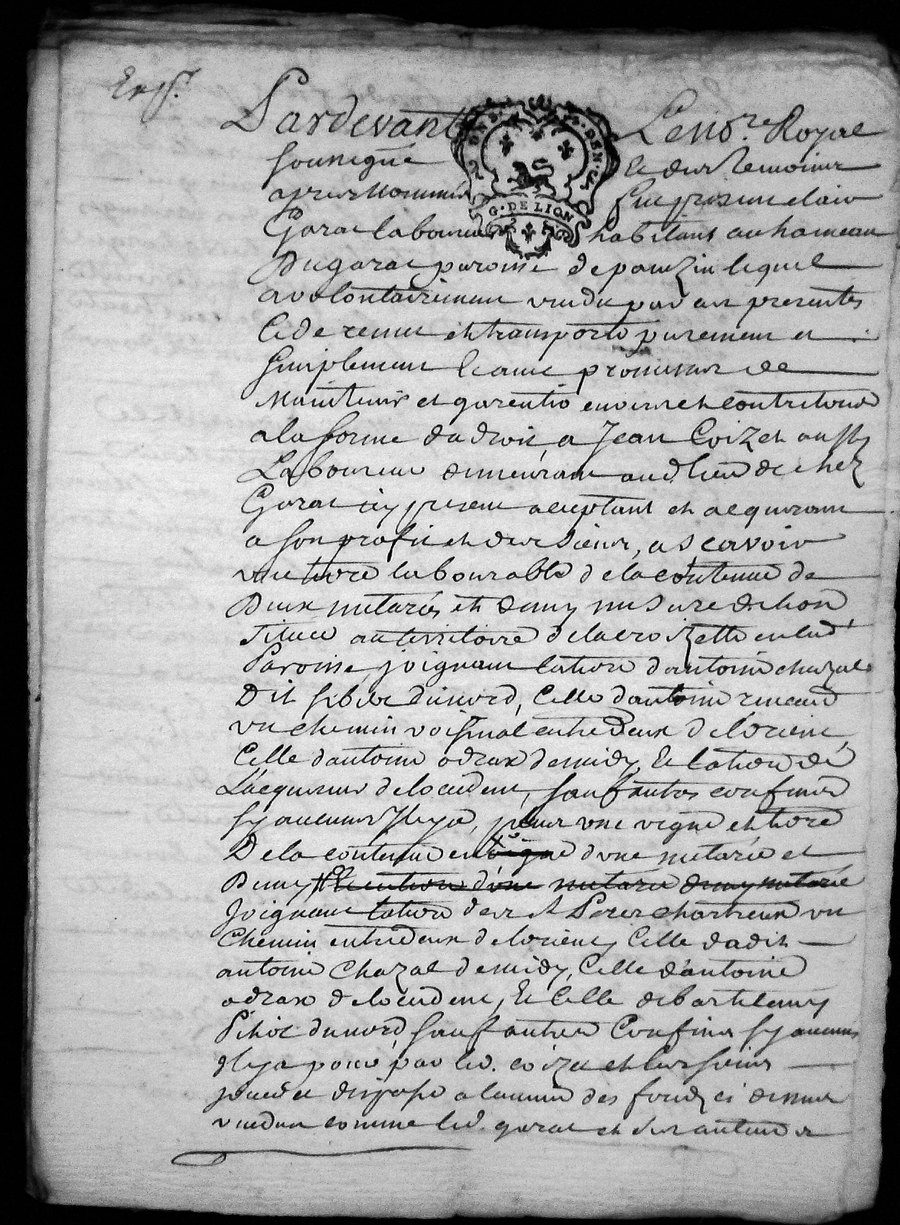 Exp.
Pardevant Le no.re Royal
soussigné Et des temoins
apres nommés fut present clair
Garat laboureur habitant au hameau
Du garat paroisse de pouzin lequel
a volontairement vendu par ces presentes
Cede remis et transporté purement et
simplement Et avec promesse de
Maintenir et garentir envers et contre tous
a la forme du droit a Jean Coizet aussy
Laboureur demeurant aud. lieu de chez
Garat icy present aceptant et acquerant
a son profit et des siens, a scavoir
une terre labourable de la contenue de
Deux metarés et demy mesure de lion
située au territoire de la croizette en lad.
Paroisse, joignant la terre d'antoine chazal
Dit du nord, Celle d'antoine renaud
un chemin voisinal entredeux de lorient,
Celle d'antoine adrax de midy, Et la terre de
L'acquereur de locident, sauf autres confins
sy aucuns Il y a, plus une vigne et terre
De la contenue en d'une metarée et
Demy
Joignant la terre des R. Peres chartreux un
Chemin entredeux de lorient, Celle dudit
antoine Chazal de midy, Celle d'antoine
adrax de locident, Et Celle de bartelemy
Pitiot du nord sauf autres Confins sy aucuns
Il y a pour par led. coizet et les siens
jouir et disposer a lavenir des fonds ci dessus
vendus comme led. garat et ses auteurs
G. DE LION